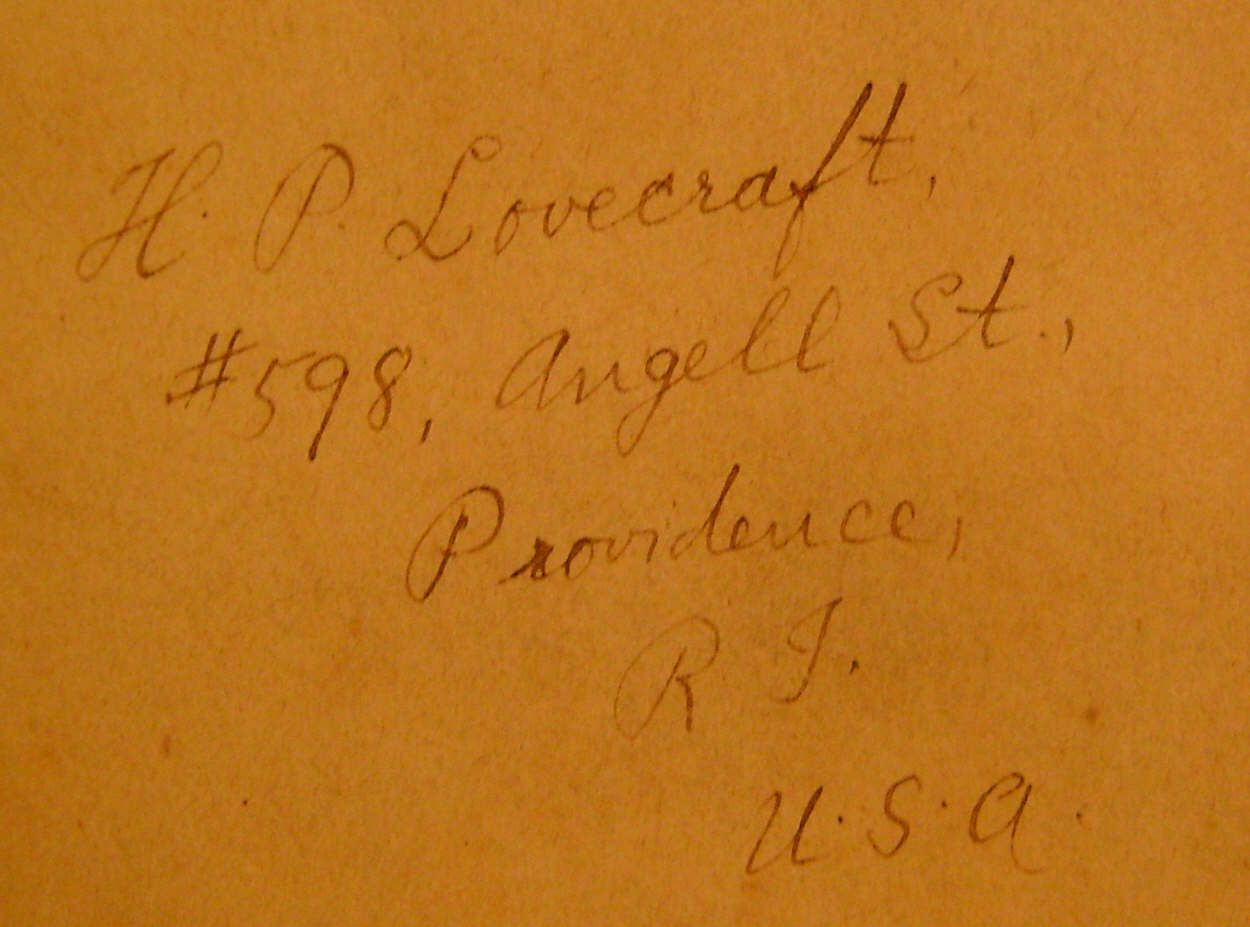 H. P. Lovecraft,
#598, Angell St.,
Providence,
R I.
U.S.A.